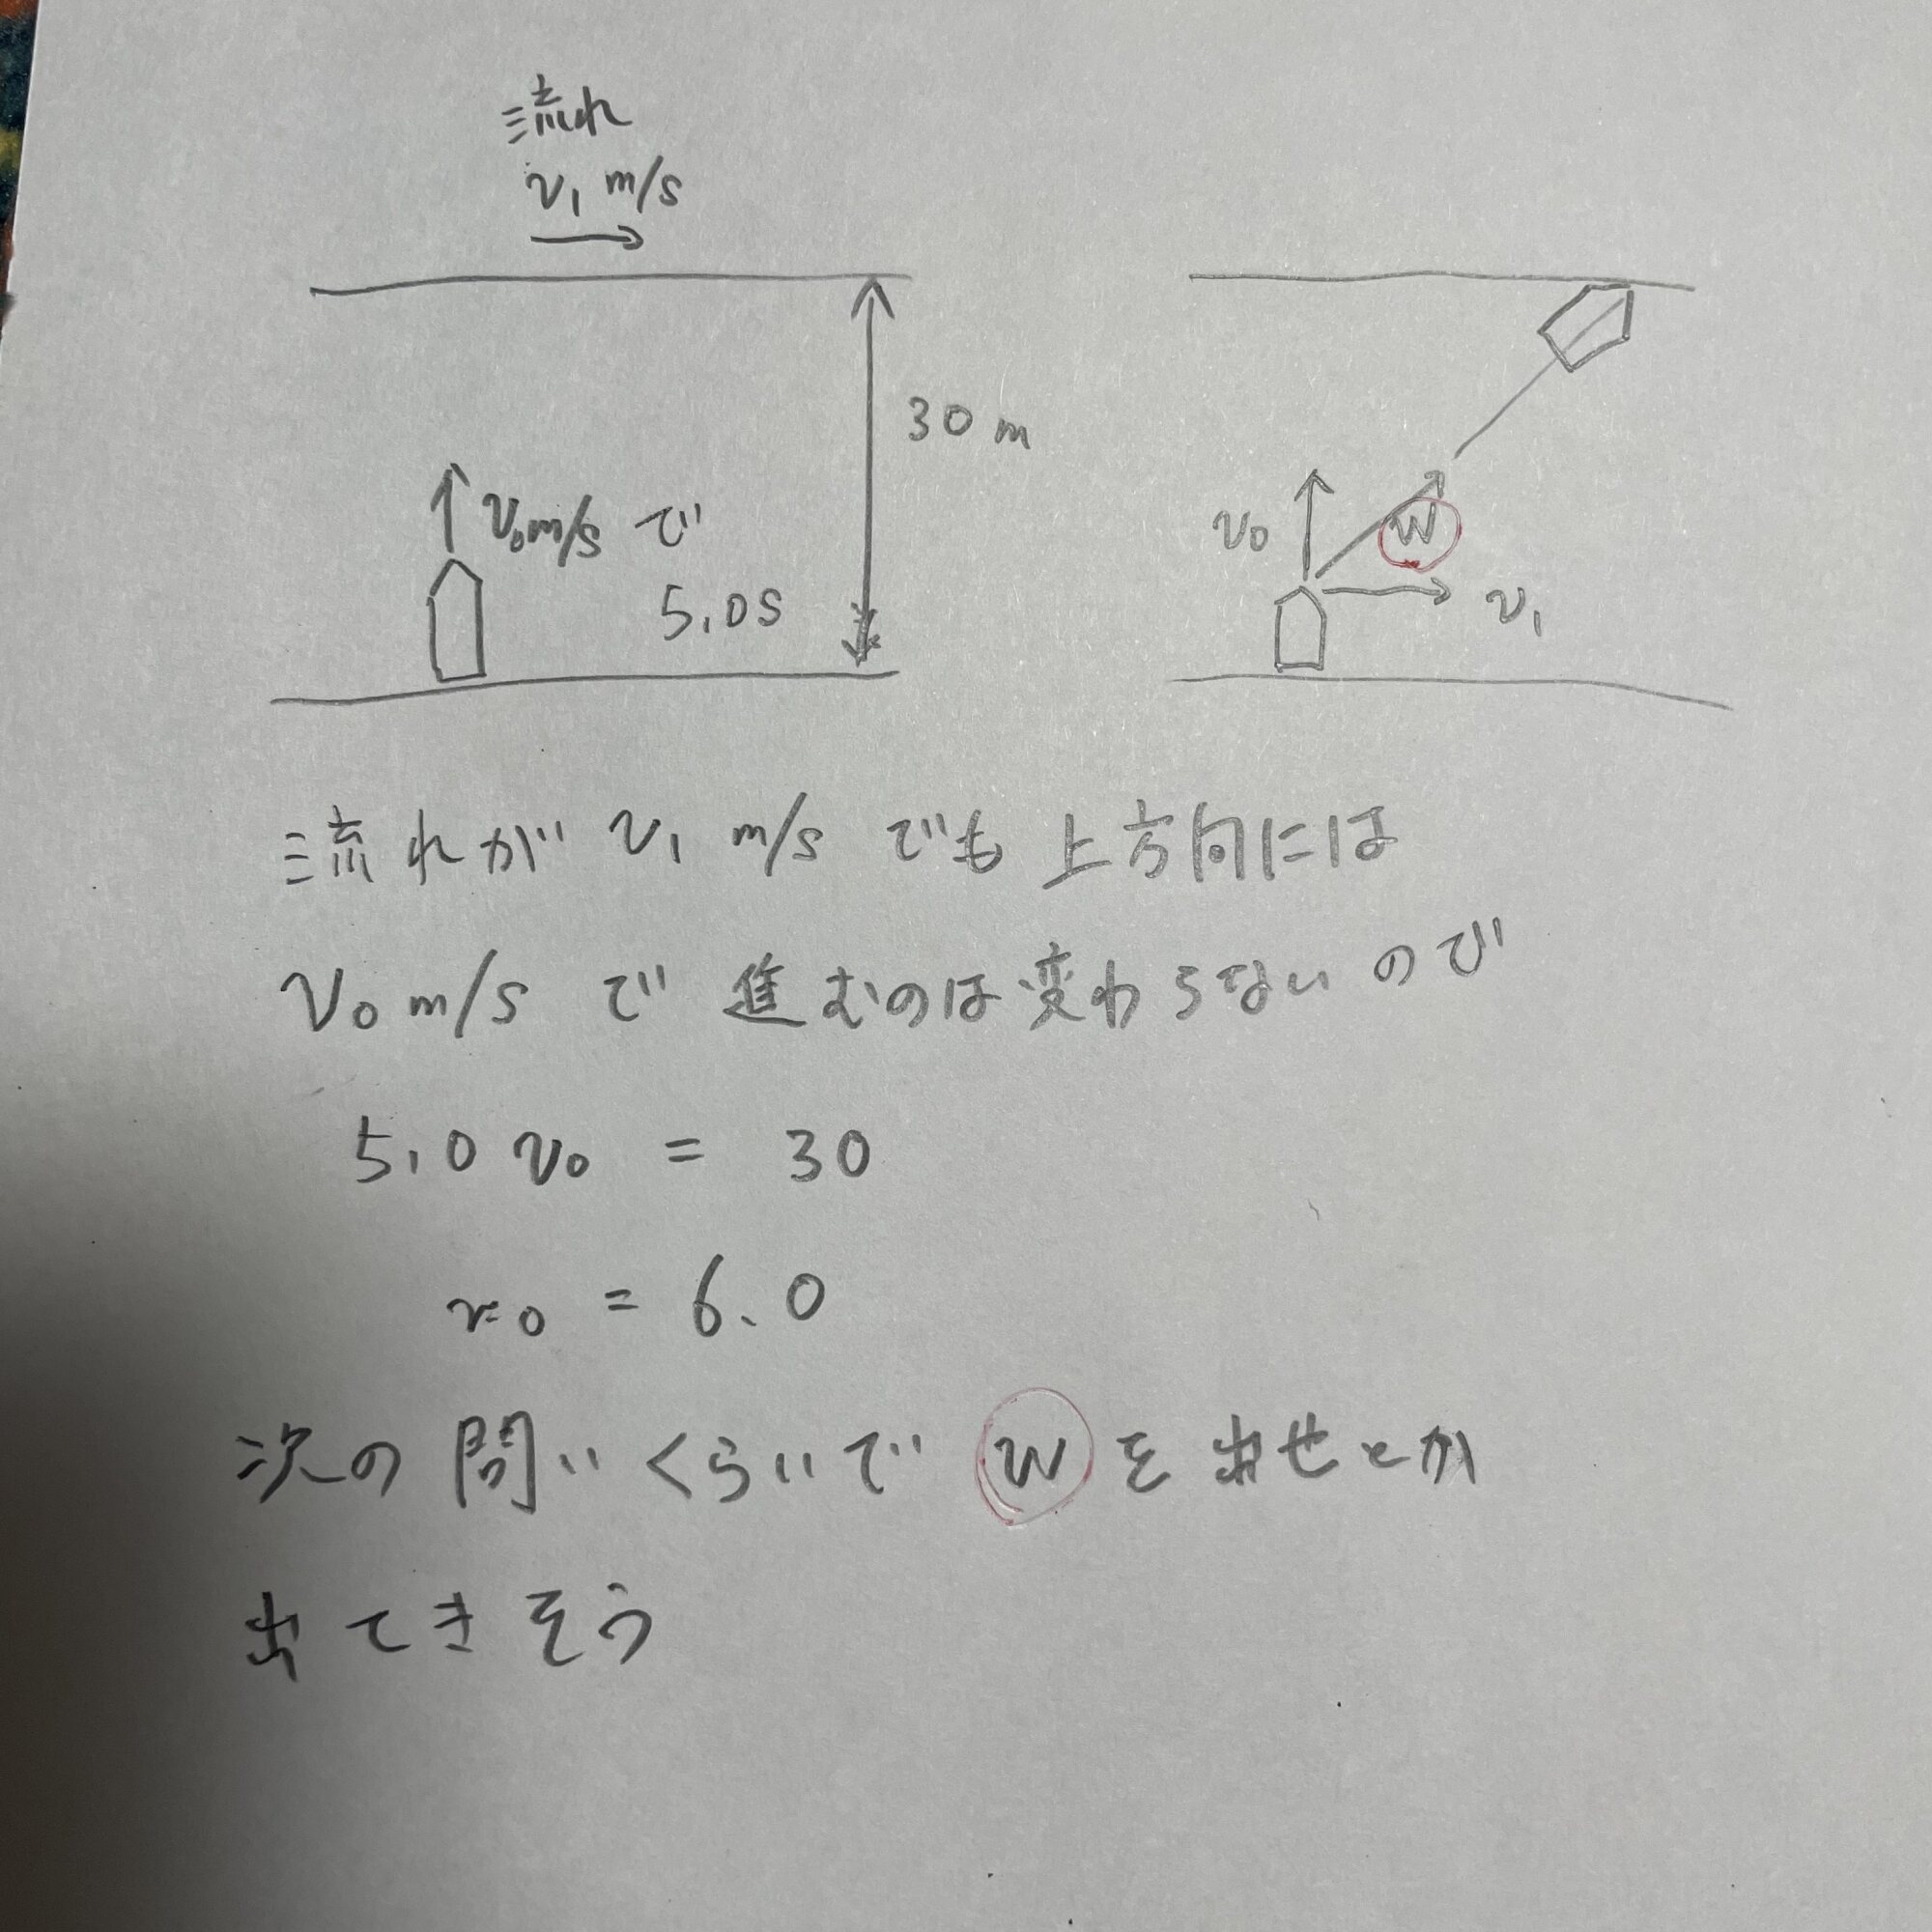 流れ
v₁ m/s
30 m
v₀m/s で
5.0s
v₀
w
v₁
流れが v₁ m/s でも 上方向には
v₀ m/s で 進むのは変わらないので
5.0 v₀ = 30
v₀ = 6.0
次の 問いくらいで w を 出せとか
出てきそう